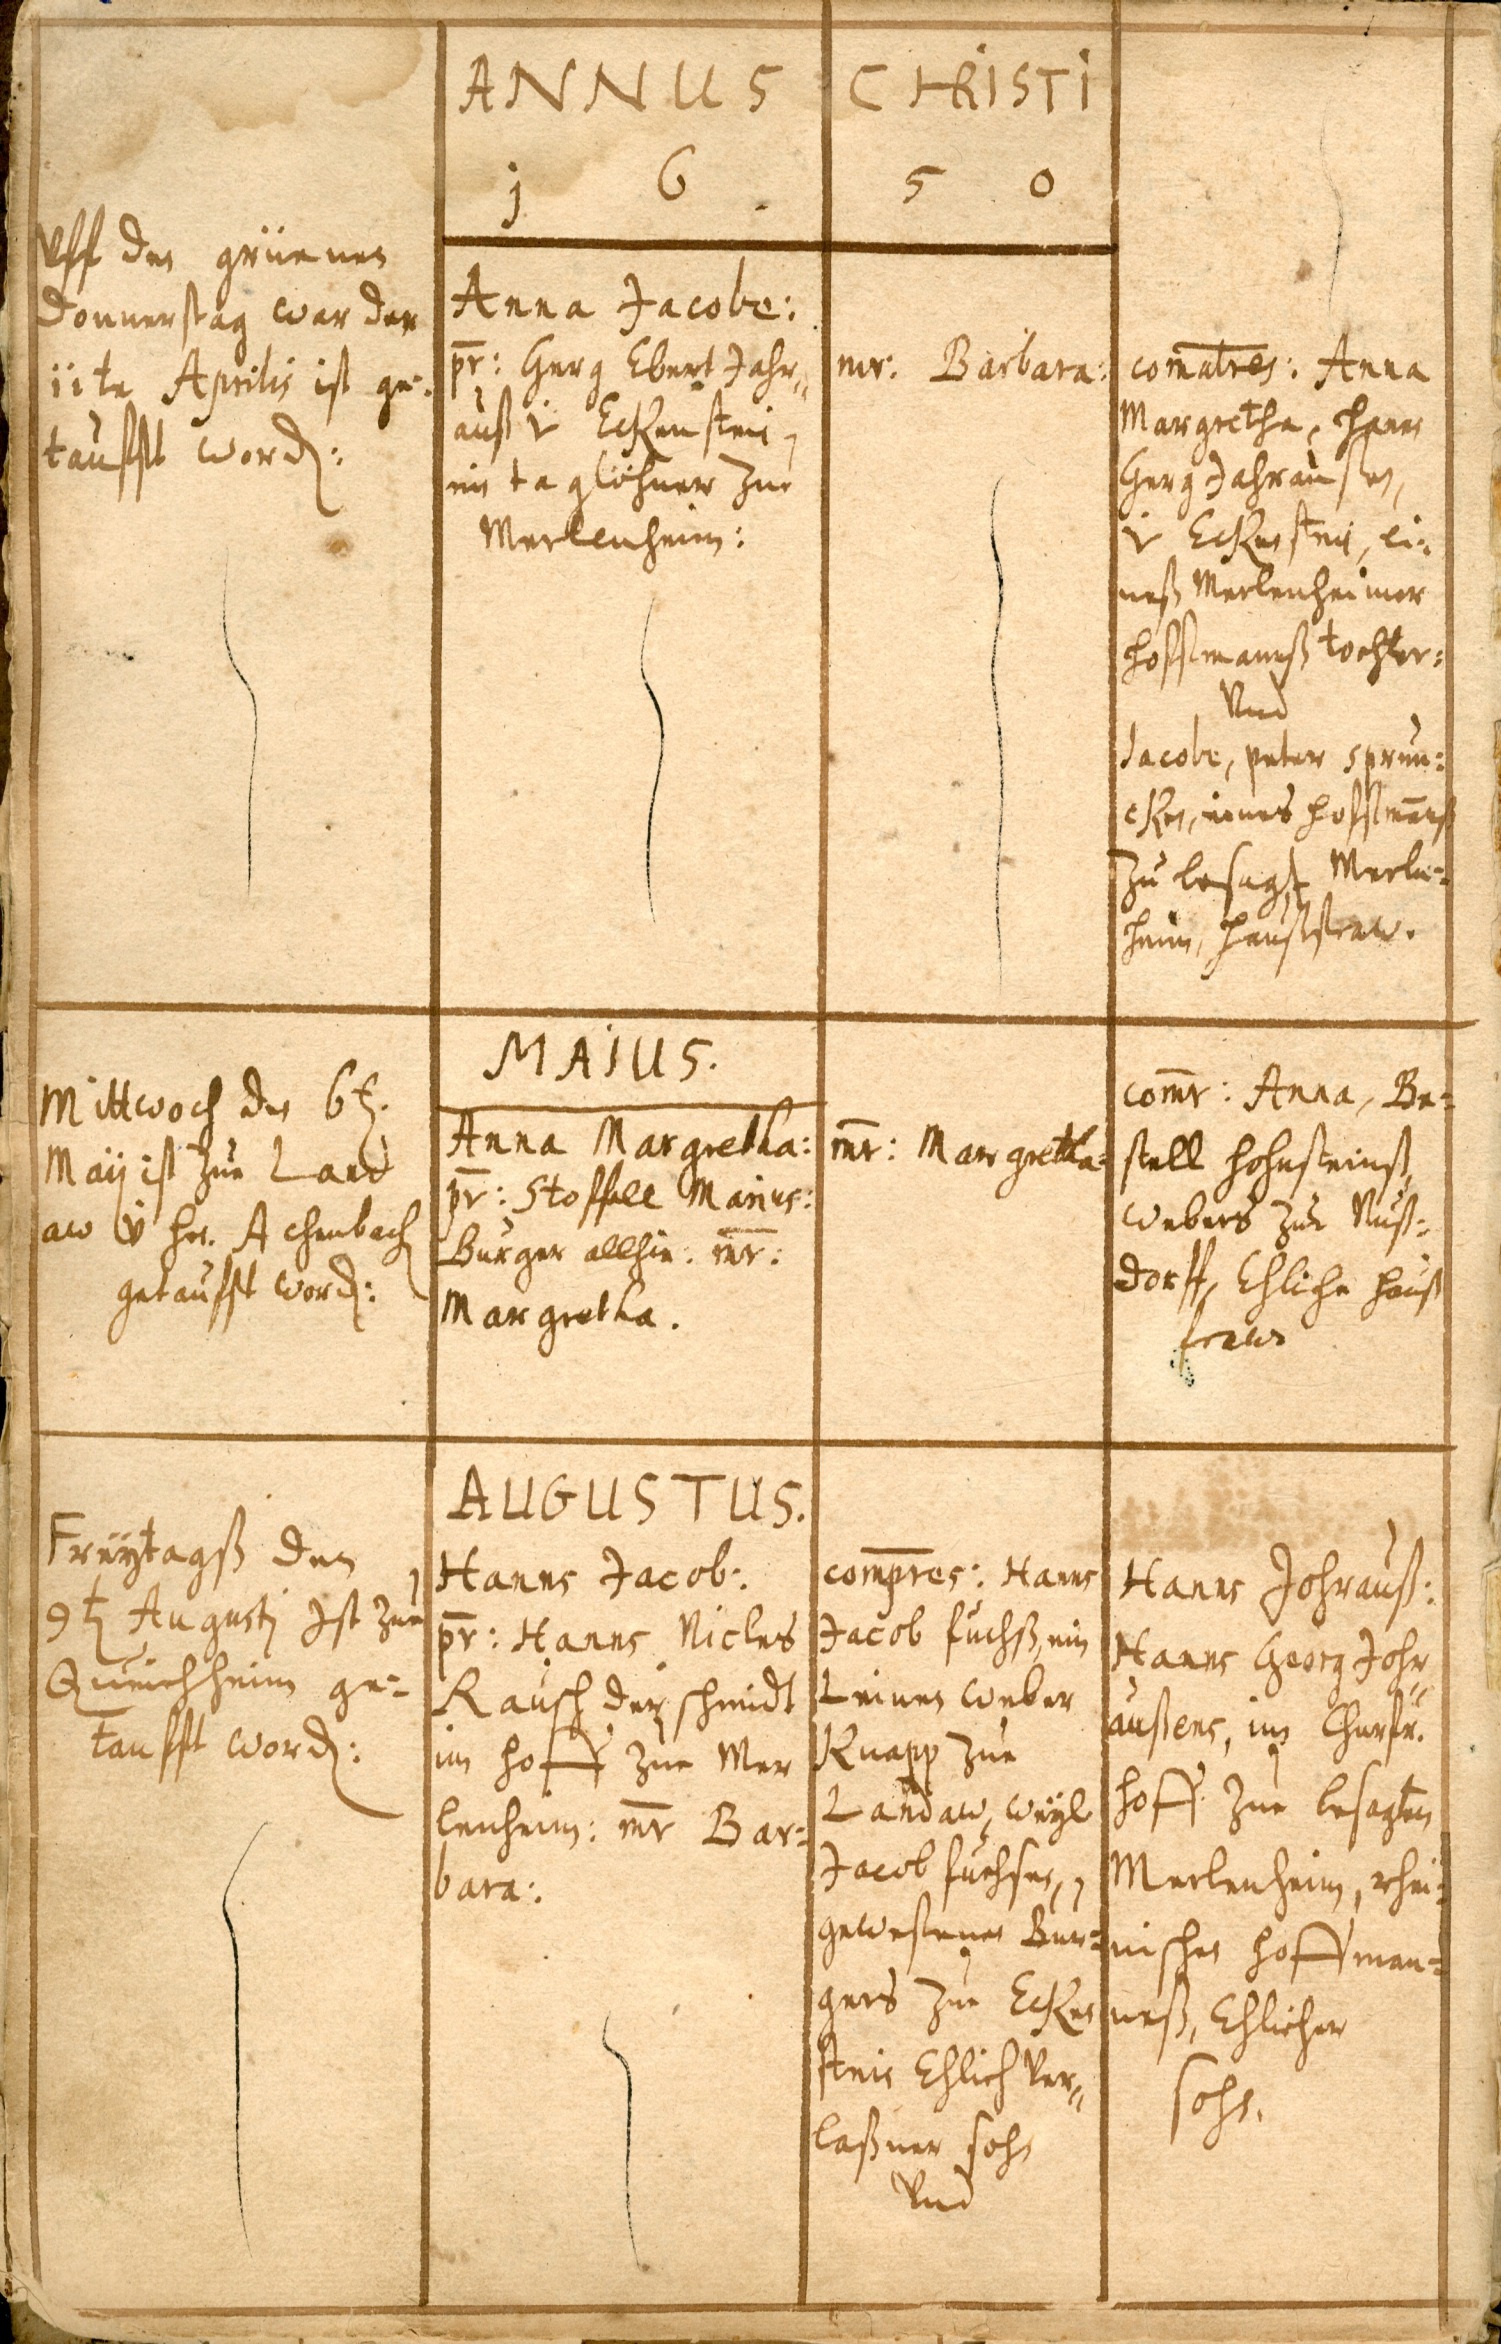 ANNUS CHRISTI
1 6 5 0
Vff den grüenen
Donnerstag war der
11te Aprilis ist ge-
taufft word:
Anna Jacobe:
pr: Gerg Ebert Jahr„
auß v Eckenstein,
ein taglöhner zue
Merlenheim:
mr: Barbara:
comatres: Anna
Margretha, Hanns
Gerg Jahraußen,
v Eckenstein, ei-
neß Merlenheimer
hoffmanß tochter:
Vnd
Jacobe, peter sprun-
cken, eines hoffmanß
zu besagt Merlen-
heim, haußfraw.
MAIUS.
Mittwoch den 6t.
Maij ist zue Land
aw v hrn. Achenbach
getaufft word:
Anna Margretha:
pr: Stoffell Marius:
Burger allhie: mr:
Margretha.
mr: Margretha:
comr: Anna, Be-
stell hohnsteinß,
webers zue Nuß-
dorff, Ehliche hauß
fraw
AUGUSTUS.
Freytagß den
9t Augusti Ist zue
Queichheim ge-
taufft word:
Hanns Jacob:
pr: Hanns Niclas
Rausch der schmidt
im hoff zue Mer
lenheim: mr Bar-
bara:
compres: Hanns
Jacob fuchß, ein
Leinen weber
Knapp zue
Landaw, weyl
Jacob fuchsen,
gewesenen Bur-
gers zue Ecken
stein Ehlich Ver„
laßner sohn
Vnd
Hanns Johrauß:
Hanns Georg Johr„
außens, im Churfr.
hoff zue besagten
Merlenheim, rhei-
nischen hoffman-
neß, Ehlicher
sohn.